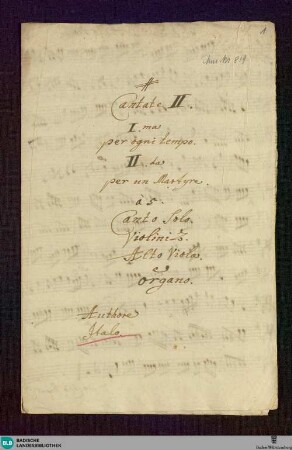 1
Cantate II.
I. ma
per ogni tempo.
II. da
per un Martyre.
à 5.
Canto Solo.
Violini 2.
Alto Viola.
è
Organo.
Authore
Italo.
BLB BADISCHE
LANDESBIBLIOTHEK
Baden-Württemberg